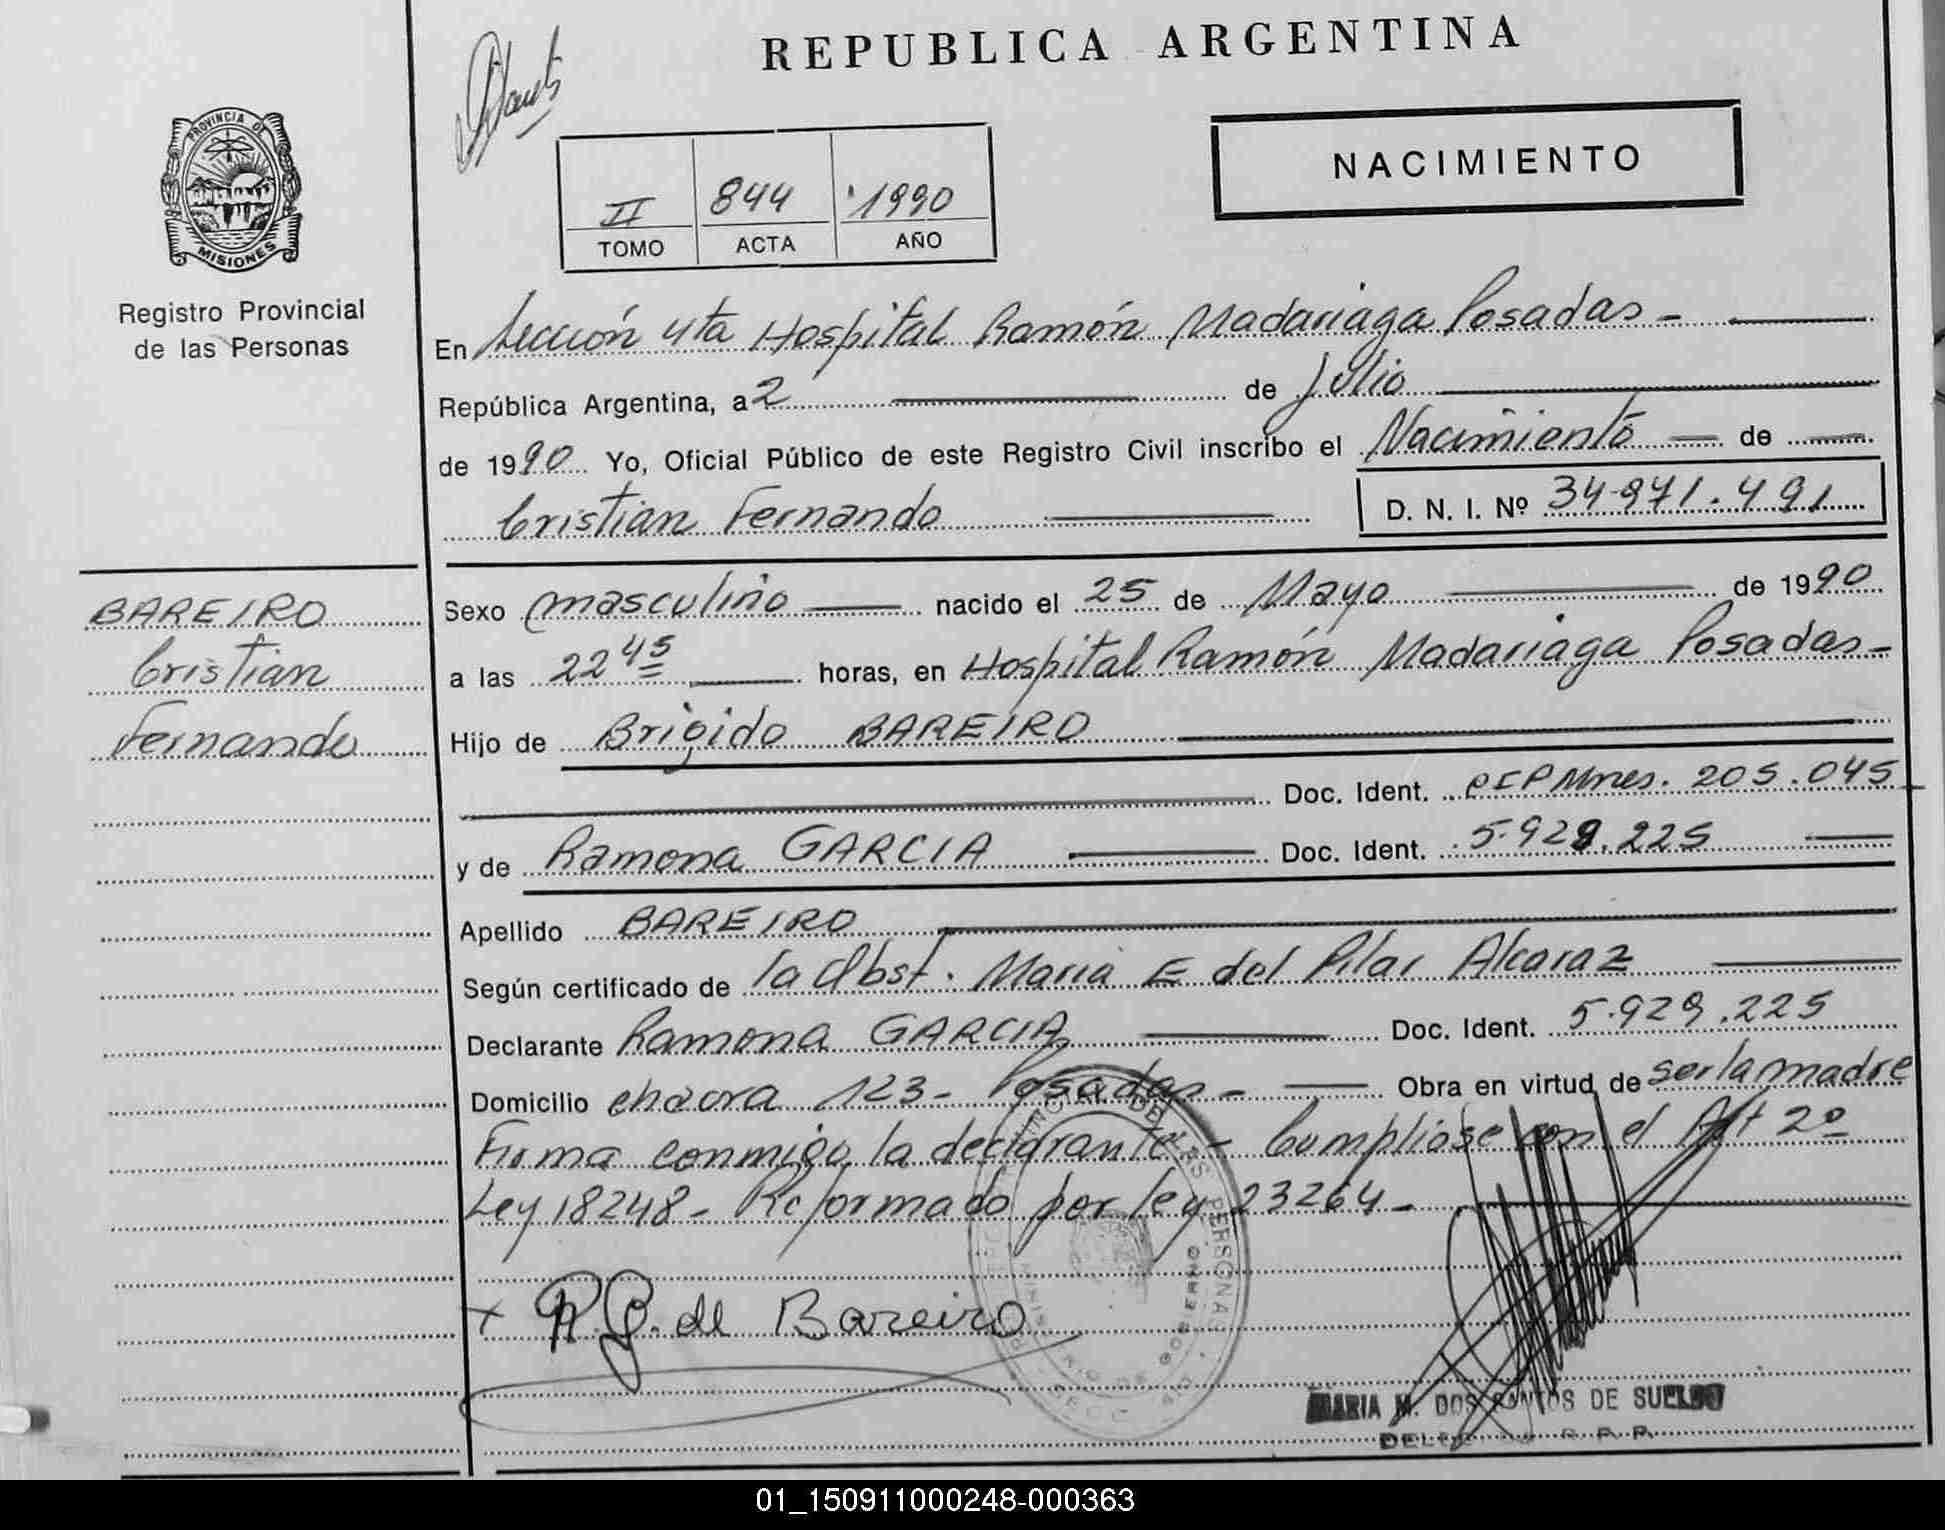 REPUBLICA ARGENTINA
NACIMIENTO
II 844 1990
TOMO ACTA AÑO
PROVINCIA DE
MISIONES
Registro Provincial
de las Personas
En Sección 4ta Hospital Ramón Madariaga Posadas -
República Argentina, a 2 de Julio
de 1990 Yo, Oficial Público de este Registro Civil inscribo el Nacimiento de
Cristian Fernando D. N. I. Nº 34.971.491
BAREIRO
Cristian
Fernando
Sexo masculino nacido el 25 de Mayo de 1990
a las 22 45 horas, en Hospital Ramón Madariaga Posadas -
Hijo de Brigido BAREIRO
Doc. Ident. CIPMnes. 205.045
y de Ramona GARCIA Doc. Ident. 5.929.225
Apellido BAREIRO
Según certificado de la Obst. Maria E del Pilar Alcaraz
Declarante Ramona GARCIA Doc. Ident. 5.929.225
Domicilio chacra 123 - Posadas - Obra en virtud de ser la madre
Firma conmigo la declarante - Cumplióse con el Art 2º
Ley 18248 - Reformado por ley 23264 -
x R. G. de Bareiro
DE LAS PERSONAS
DE GOBIERNO
MARIA M. DOS SANTOS DE SUELDO
R. P. P.
01_150911000248-000363